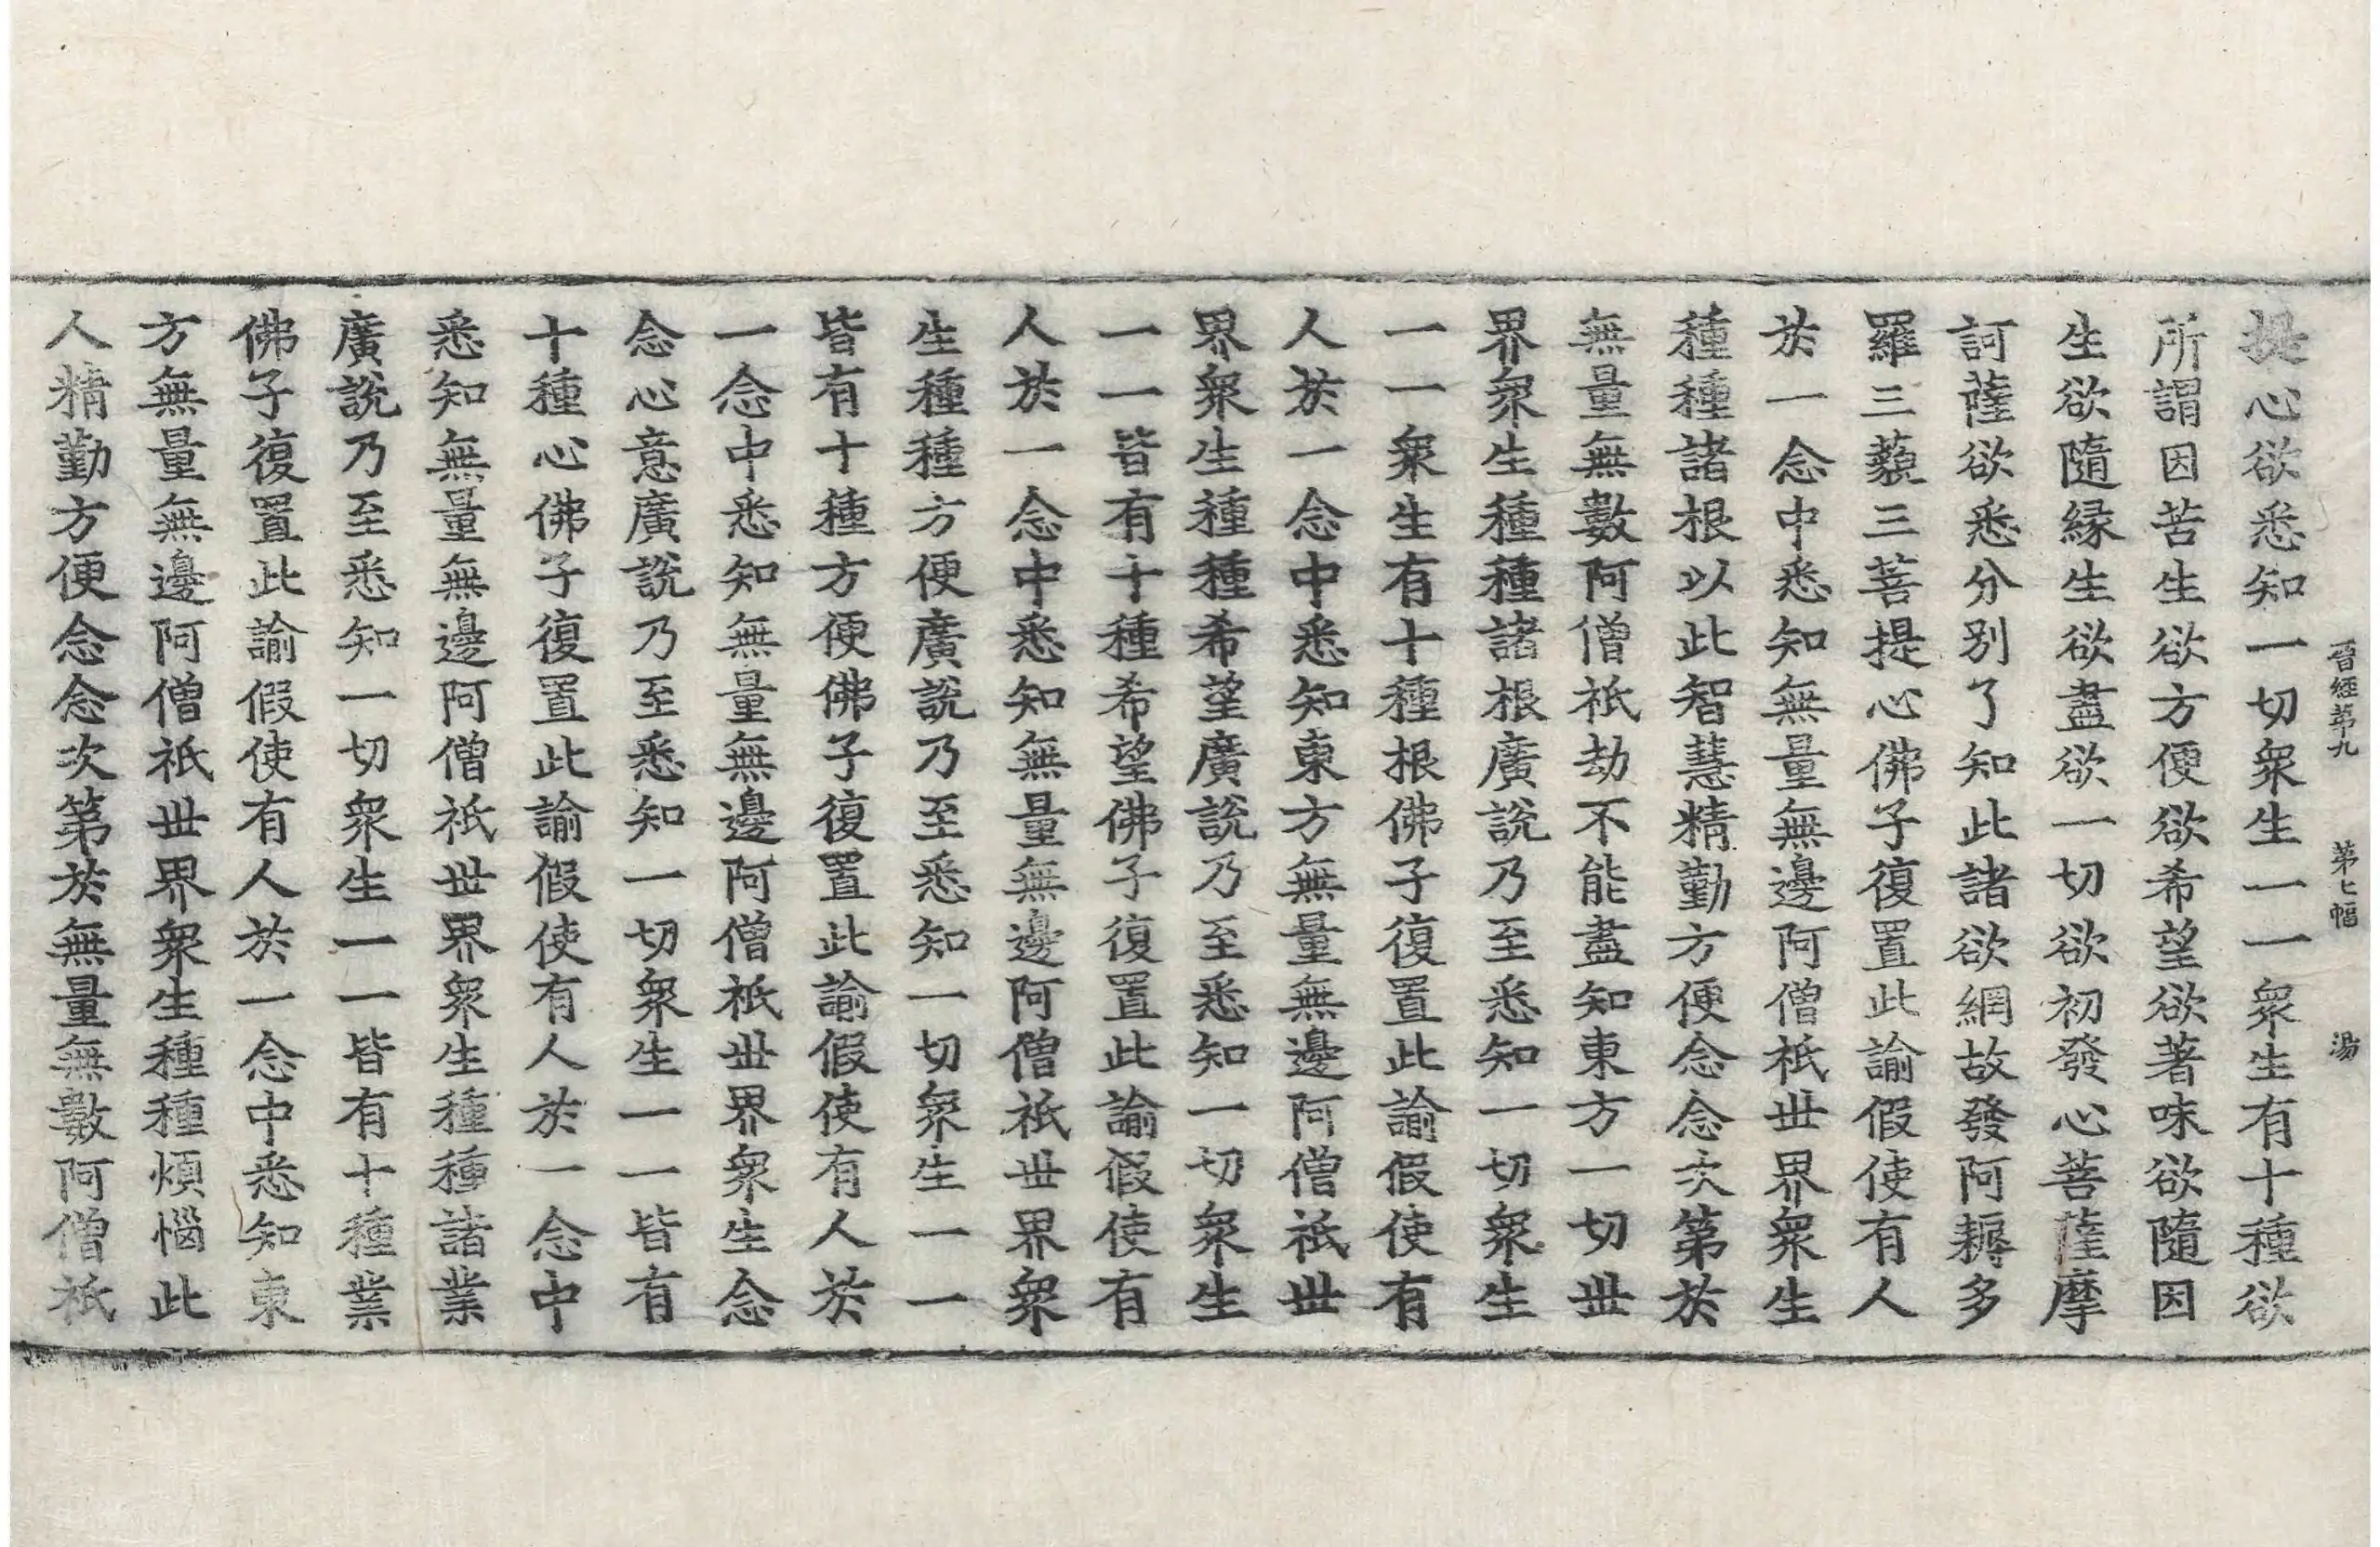 晋經第九　第七幅　湯
提心欲悉知一切衆生一一衆生有十種欲
所謂因苦生欲方便欲希望欲著味欲隨因
生欲隨縁生欲盡欲一切欲初發心菩薩摩
訶薩欲悉分別了知此諸欲網故發阿耨多
羅三藐三菩提心佛子復置此諭假使有人
於一念中悉知無量無邊阿僧祇世界衆生
種種諸根以此智慧精勤方便念念次第於
無量無數阿僧祇劫不能盡知東方一切世
界衆生種種諸根廣說乃至悉知一切衆生
一一衆生有十種根佛子復置此諭假使有
人於一念中悉知東方無量無邊阿僧祇世
界衆生種種希望廣說乃至悉知一切衆生
一一皆有十種希望佛子復置此諭假使有
人於一念中悉知無量無邊阿僧祇世界衆
生種種方便廣說乃至悉知一切衆生一一
皆有十種方便佛子復置此諭假使有人於
一念中悉知無量無邊阿僧祇世界衆生念
念心意廣說乃至悉知一切衆生一一皆有
十種心佛子復置此諭假使有人於一念中
悉知無量無邊阿僧祇世界衆生種種諸業
廣說乃至悉知一切衆生一一皆有十種業
佛子復置此諭假使有人於一念中悉知東
方無量無邊阿僧祇世界衆生種種煩惱此
人精勤方便念念次第於無量無數阿僧祇